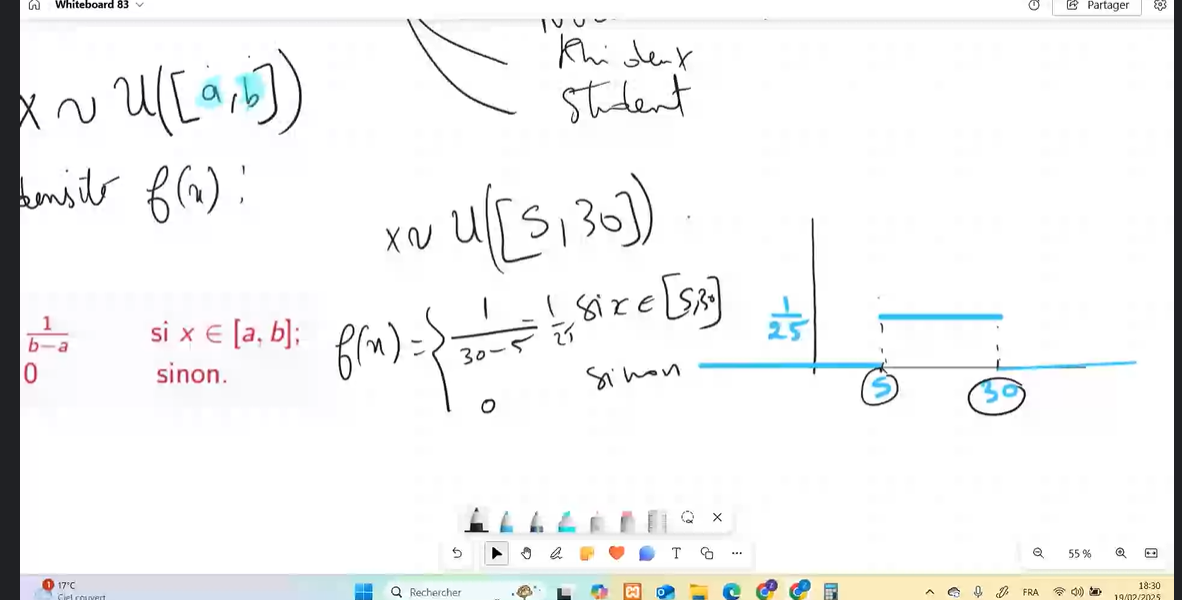 Whiteboard 83
Partager
Khi deux
Student
X ~ U([a,b])
densité f(x) :
x ~ U([5,30])
1/(b−a) si x ∈ [a, b];
0 sinon.
f(x) = { 1/(30−5) = 1/25 si x ∈ [5,30]
0 sinon
1/25
5
30
55 %
17°C
Ciel couvert
Rechercher
FRA
18:30
19/02/2025